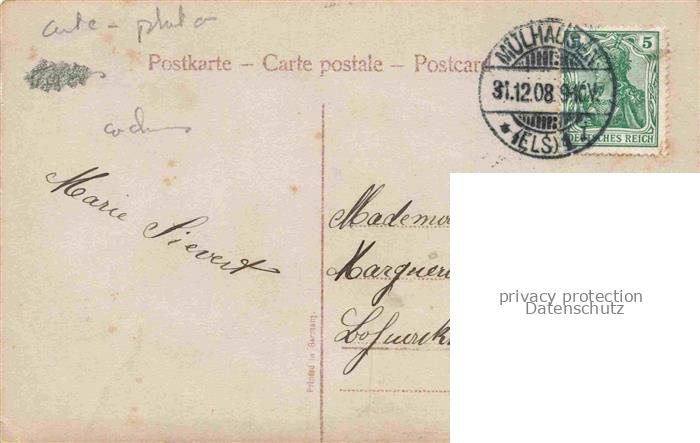 carte - photo
Postkarte – Carte postale – Postcard
MÜLHAUSEN
31.12.08 9-10V.
* (ELS) *
5
DEUTSCHES REICH
cochons
Marie Sievert
Mademo
Margueri
Printed in Germany.
privacy protection
Datenschutz